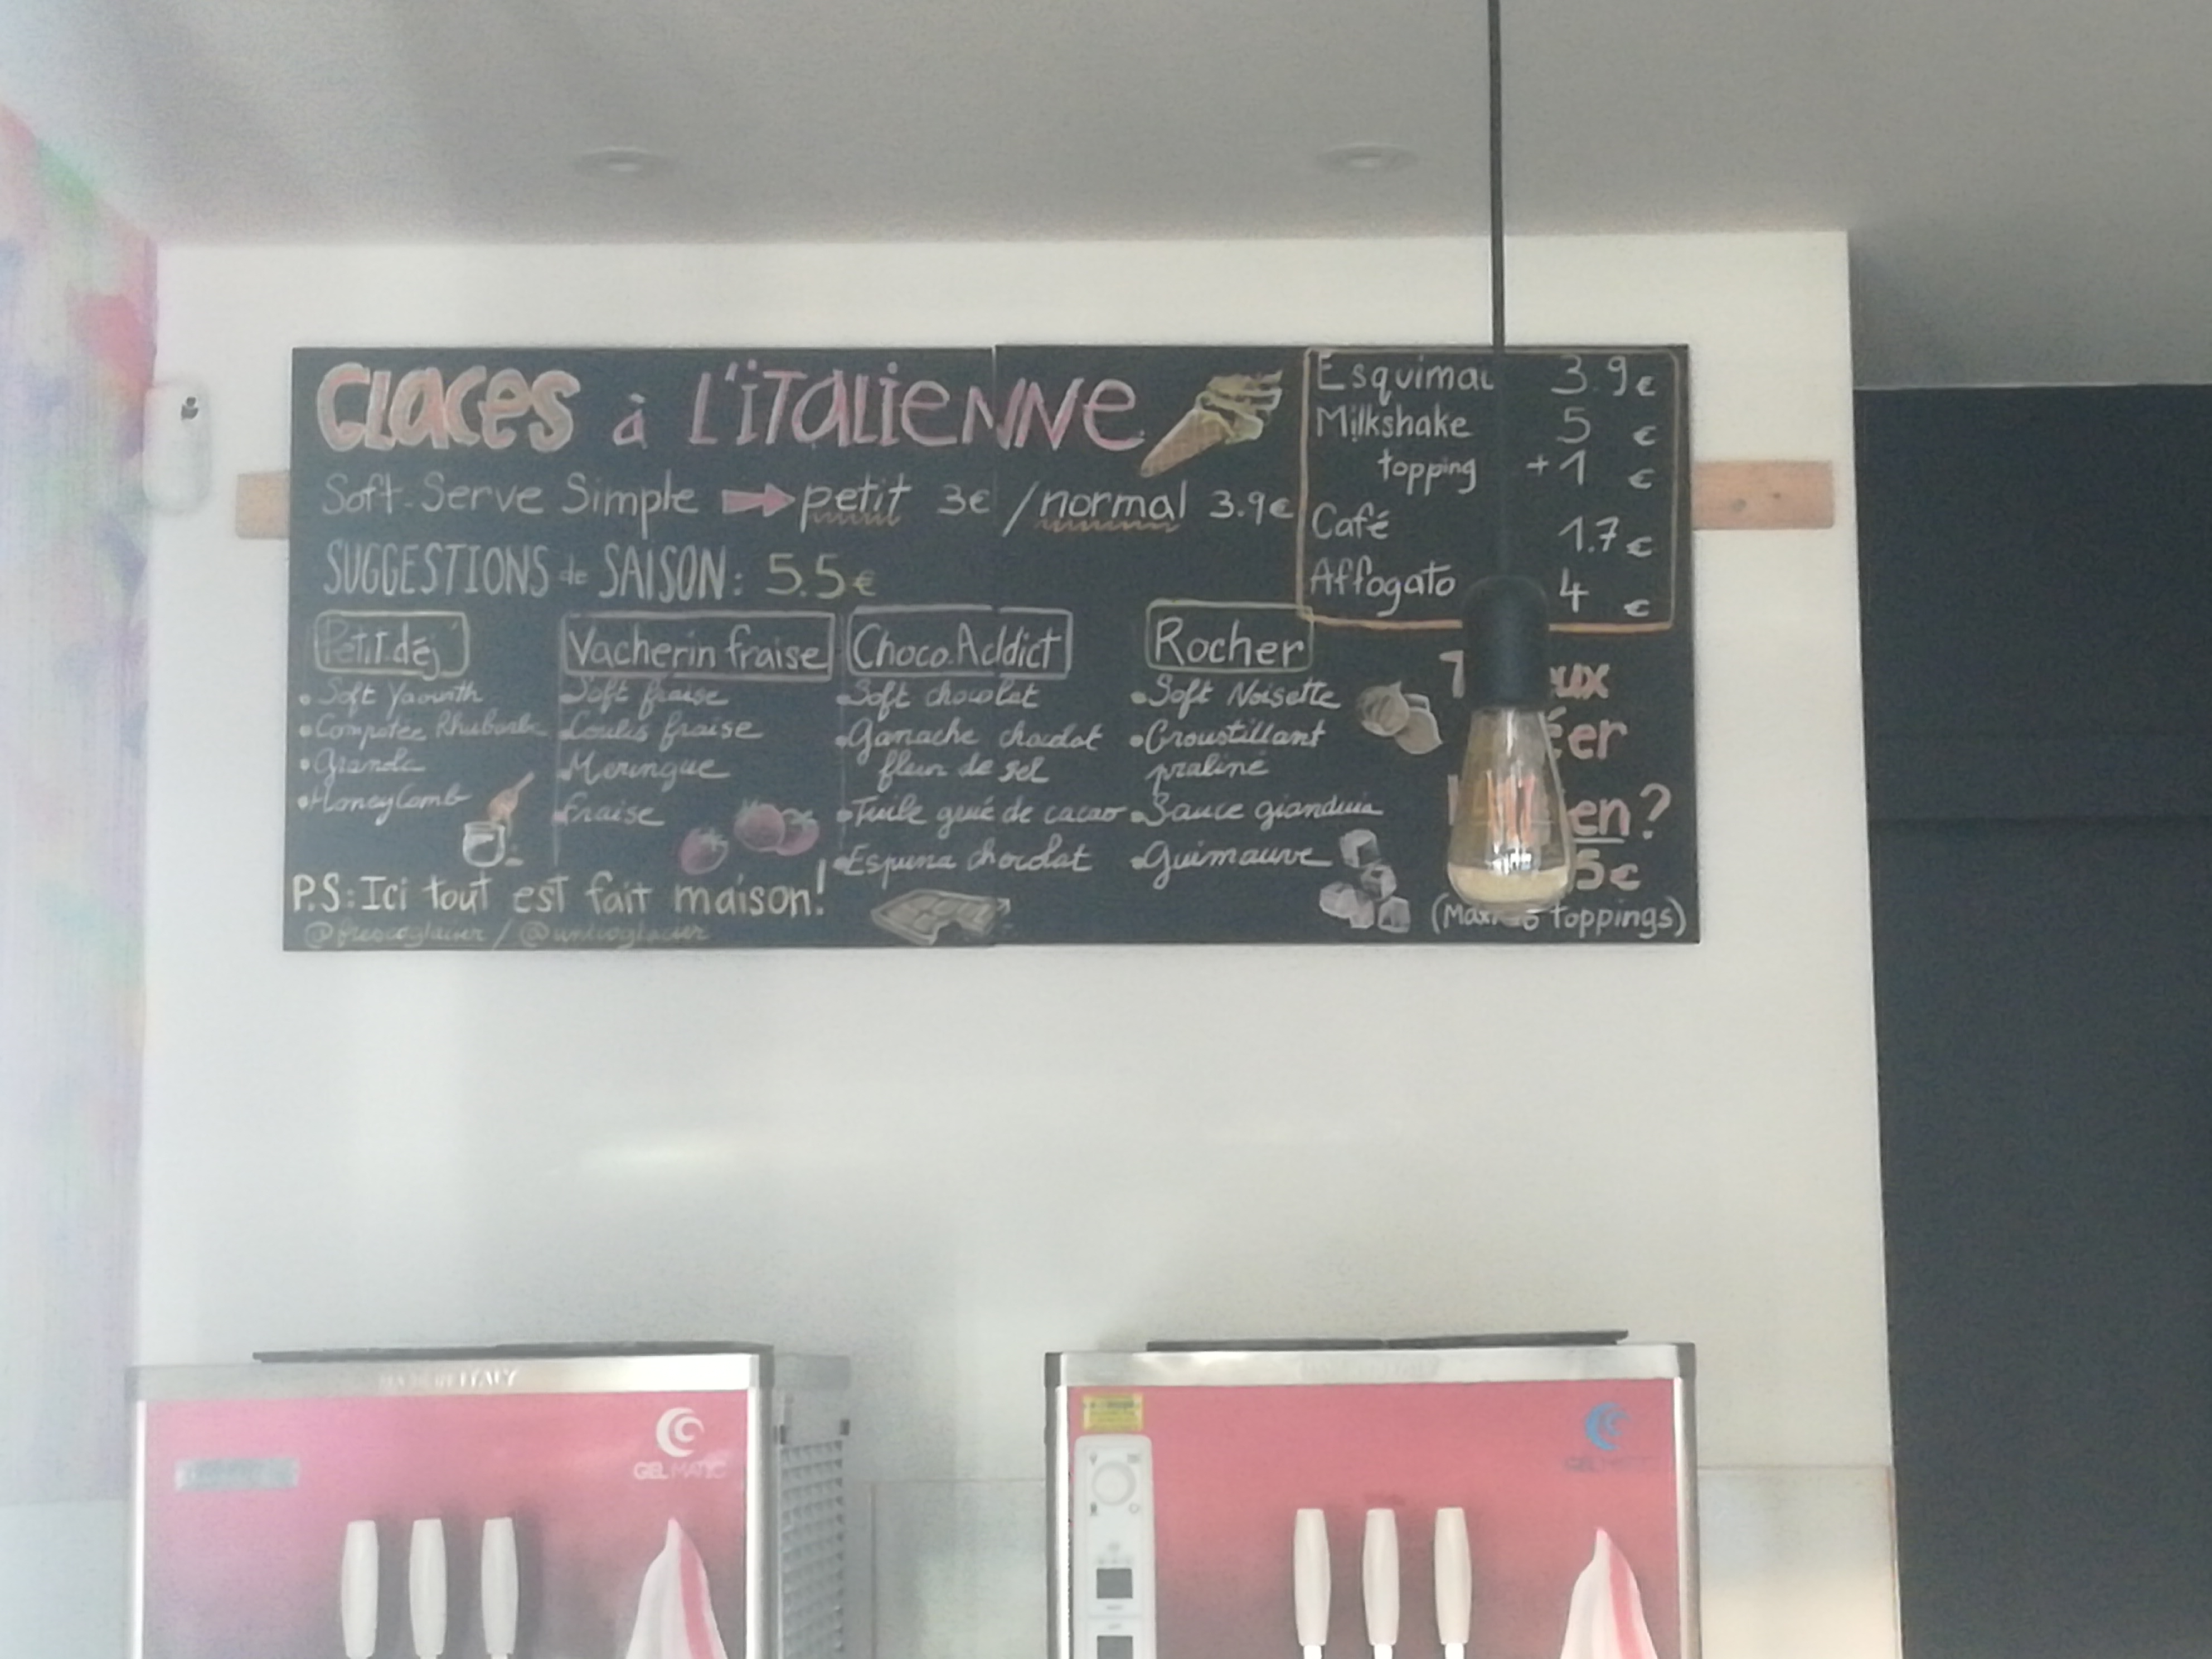 GLACES à L'ITALIENNE
Soft-Serve Simple petit 3€ / normal 3.9€
SUGGESTIONS de SAISON: 5.5€
Petit déj'
• Soft Yaourth
• Compotée Rhubarbe
• Granola
• HoneyComb
Vacherin fraise
• Soft fraise
• Coulis fraise
• Meringue
• Fraise
Choco Addict
• Soft chocolat
• Ganache chocolat
fleur de sel
• Tuile grué de cacao
• Espuma chocolat
Rocher
• Soft Noisette
• Croustillant
praliné
• Sauce gianduia
• Guimauve
P.S: Ici tout est fait maison!
@frescoglacier / @unicoglacier
Esquimau 3.9€
Milkshake 5 €
topping +1 €
Café 1.7€
Affogato 4 €
en?
5€
(Max toppings)
MADE IN ITALY
GEL MATIC
GEL MATIC